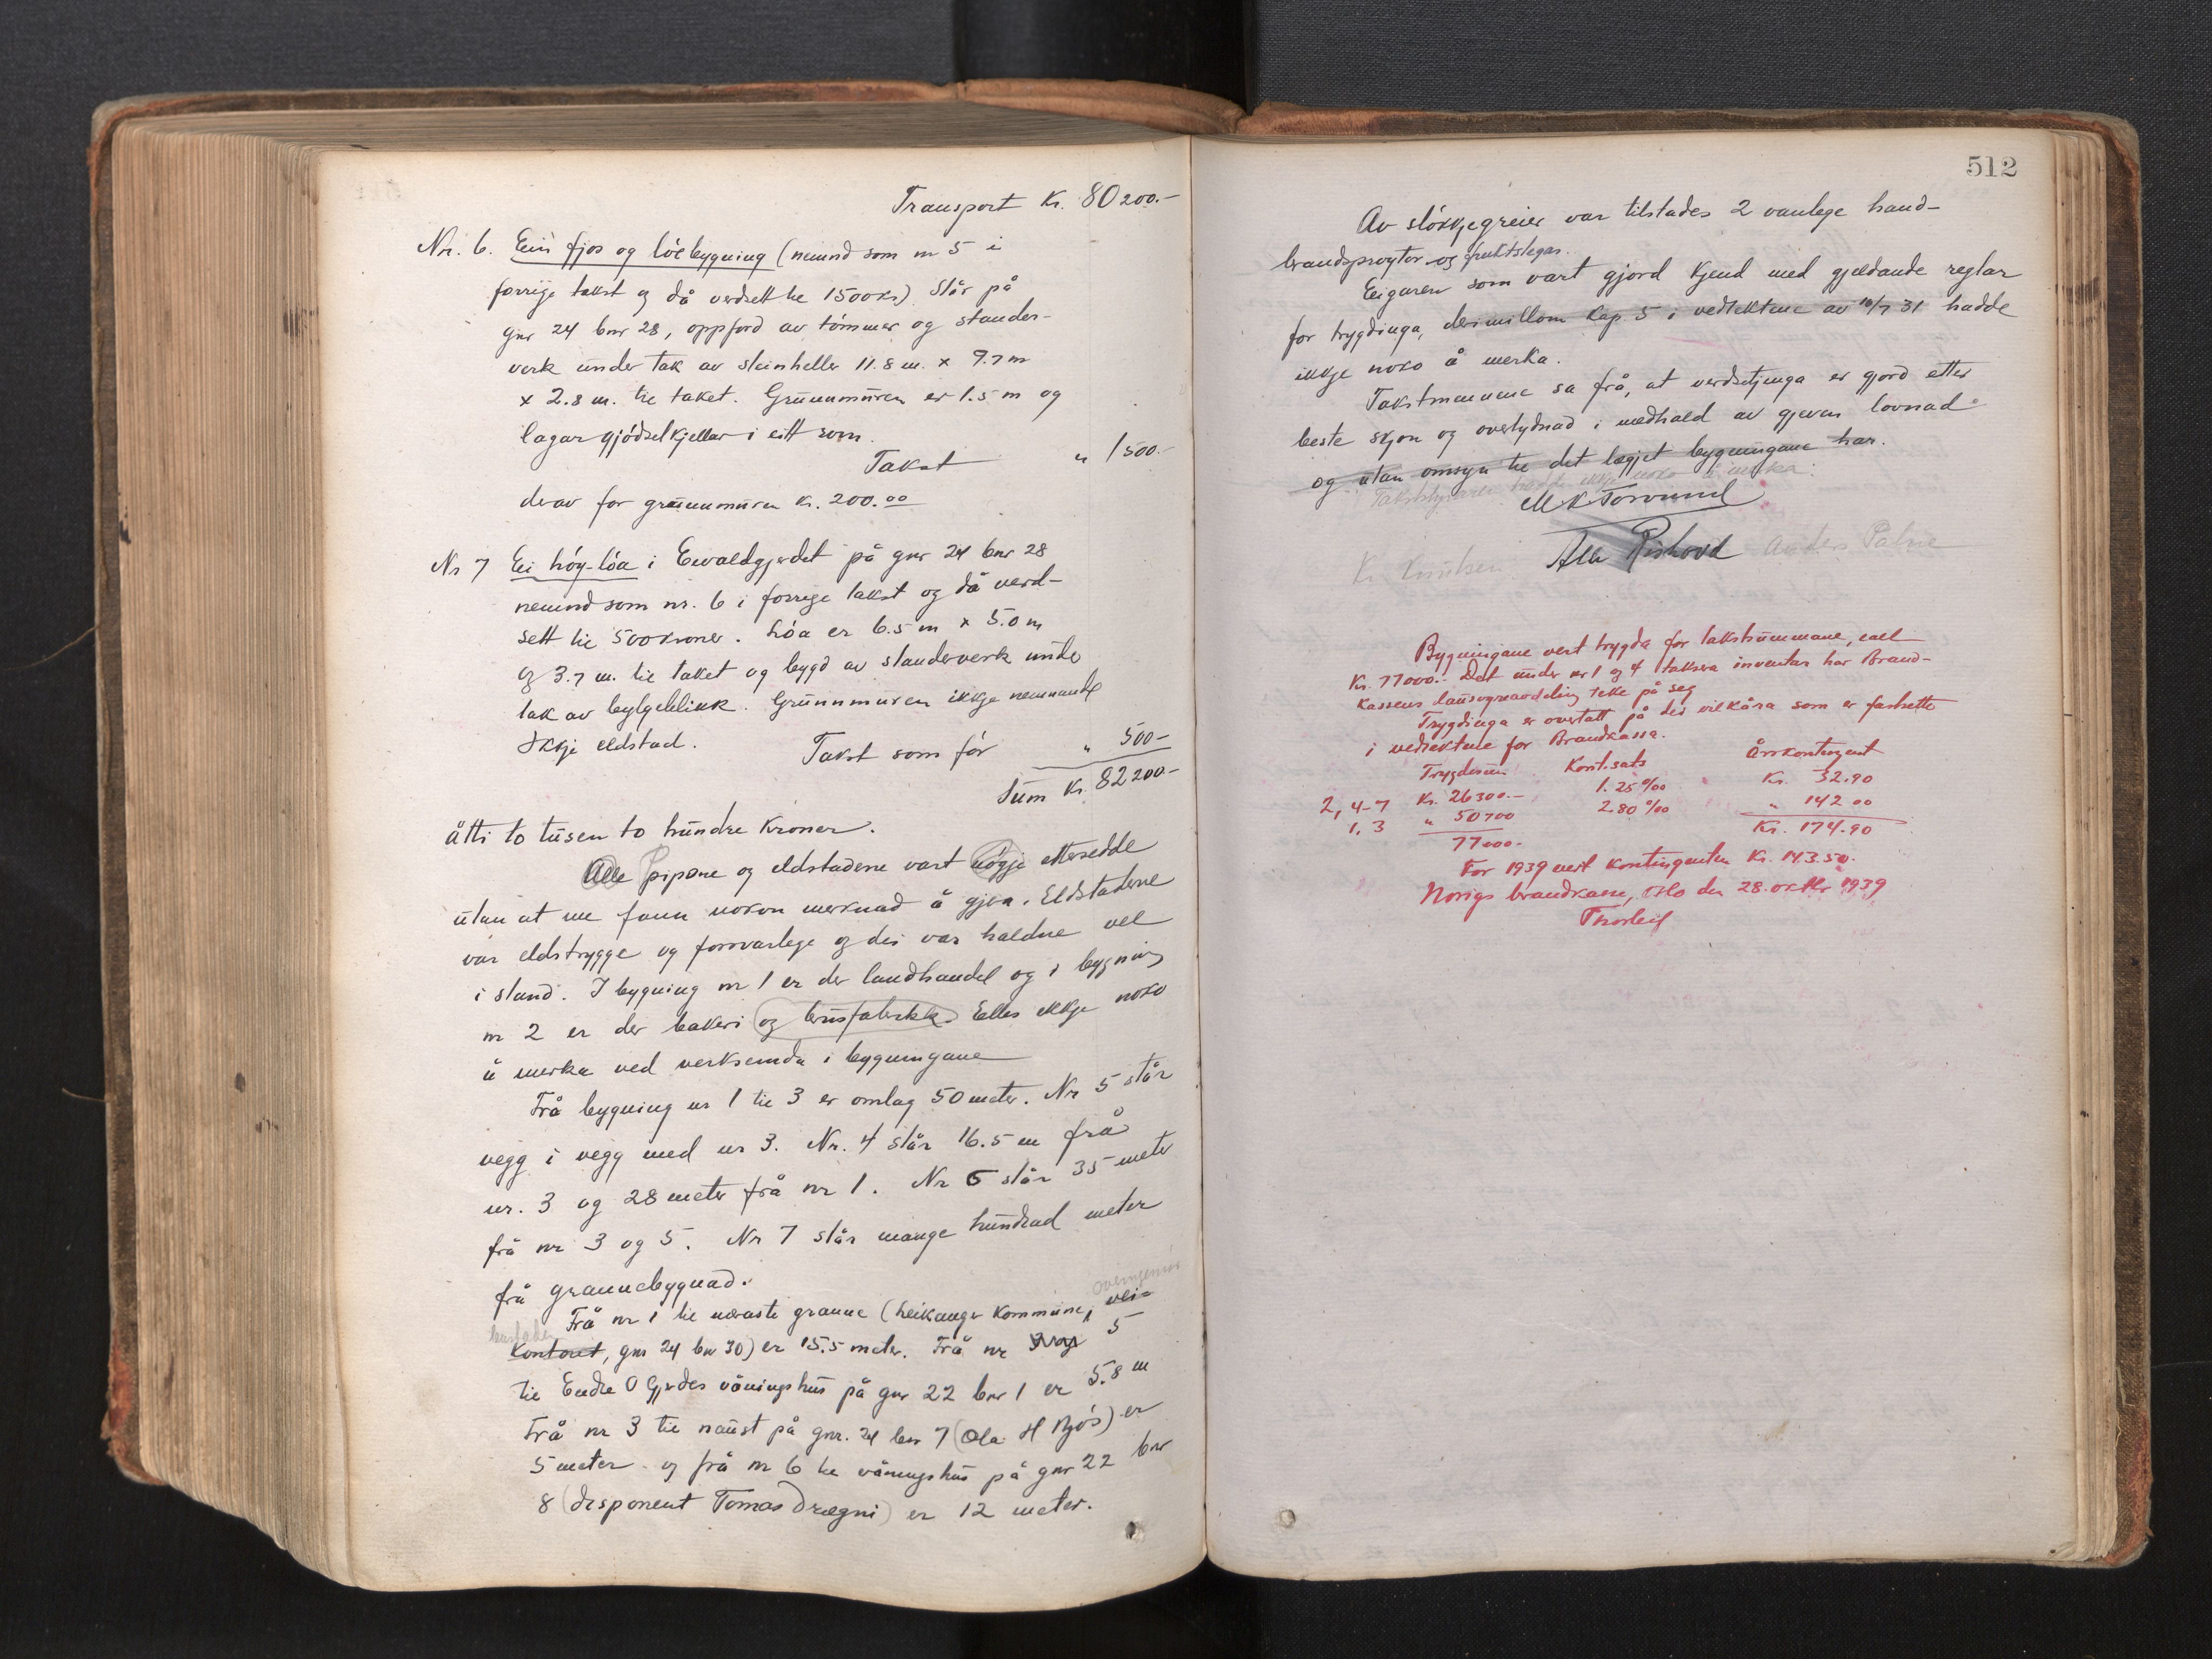 Transport Kr. 80200.-
Nr. 6. Ein fjos og löebygning (nemnd som nr 5 i
forrige takst og då verdsett te 1500 kr) Står på
gnr 24 bnr 28, oppförd av tömmer og stender-
verk under tak av steinheller 11.8 m. x 9.7 m
x 2.8 m. te taket. Grunnmuren er 1.5 m og
lagar gjödselkjellar i eitt rom.
Takst " 1500.-
derav for grunnmuren kr. 200.00
Nr 7 Ei höy-löa i Ewaldgjerdet på gnr 24 bnr 28
nemnd som nr. 6 i forrige takst og då verd-
sett til 500 kroner. Löa er 6.5 m x 5.0 m
og 3.7 m. til taket og bygd av stenderverk under
tak av bylgeblikk. Grunnmuren ikkje nemnande
Ikkje eldstad.
Takst som för " 500-
Sum Kr. 82200-
åtti to tusen to hundre kroner.
Alle pipone og eldstadene vart nögje ettersedde
utan at me fann nokon merknad å gjera. Eldstadene
var eldstrygge og forsvarlege og dei var haldne vel
i stand. I bygning nr 1 er der landhandel og i bygning
nr 2 er der bakeri og brusfabrikk. Elles ikkje noko
å merka ved verksemda i bygningane
Frå bygning nr 1 til 3 er omlag 50 meter. Nr 5 står
vegg i vegg med nr 3. Nr. 4 står 16.5 m frå
nr. 3 og 28 meter frå nr 1. Nr 6 står 35 meter
frå nr 3 og 5. Nr 7 står mange hundrad meter
frå grannebygnad.
overingeniör
Frå nr 1 til næraste granne (Leikanger kommune, vei-
bustaden
kontoret, gnr 24 bnr 30) er 15.5 meter. Frå nr 3 og 5
til Endre O Gjerdes våningshus på gnr 22 bnr 1 er 5.8 m
Frå nr 3 til naust på gnr. 24 bnr 7 (Ola H Njös) er
5 meter og frå nr 6 te våningshus på gnr 22 bnr
8 (disponent Tomas Drægni) er 12 meter.
512
Av slökkjegreier var tilstades 2 vanlege hand-
brandsproytor og fruktslegar.
Eigaren som vart gjord kjend med gjeldande reglar
for trygdinga, derimillom kap. 5 i vedtektene av 10/7 31 hadde
ikkje noko å merka.
Takstmennene sa frå, at verdsetjinga er gjord etter
beste skjön og overtydnad i medhald av gjeven lovnad
og utan omsyn te det lægjet bygningane har.
Takststyraren hadde ikkje noko å merka.
M K Torvund
Kr. Knutsen Alb Rishovd Anders Palne
Bygningane vert trygda for takstsummane, i alt
Kr. 77000.- Det under nr 1 og 4 taksera inventar har Brand-
kassens lausöyreavdeling teke på seg
Trygdinga er overtatt på dei vilkåra som er fastsette
i vedtektene for Brandkassa.
Trygdesum Kont.sats Årskontingent
2, 4-7 Kr. 26300.- 1.25 ‰ Kr. 32.90
1, 3 " 50700 2.80 ‰ " 142 00
77000.- Kr. 174.90
For 1939 vert kontingenten Kr. 143.50.
Norigs brandkasse, Oslo den 28. oktbr 1939
Thorleif